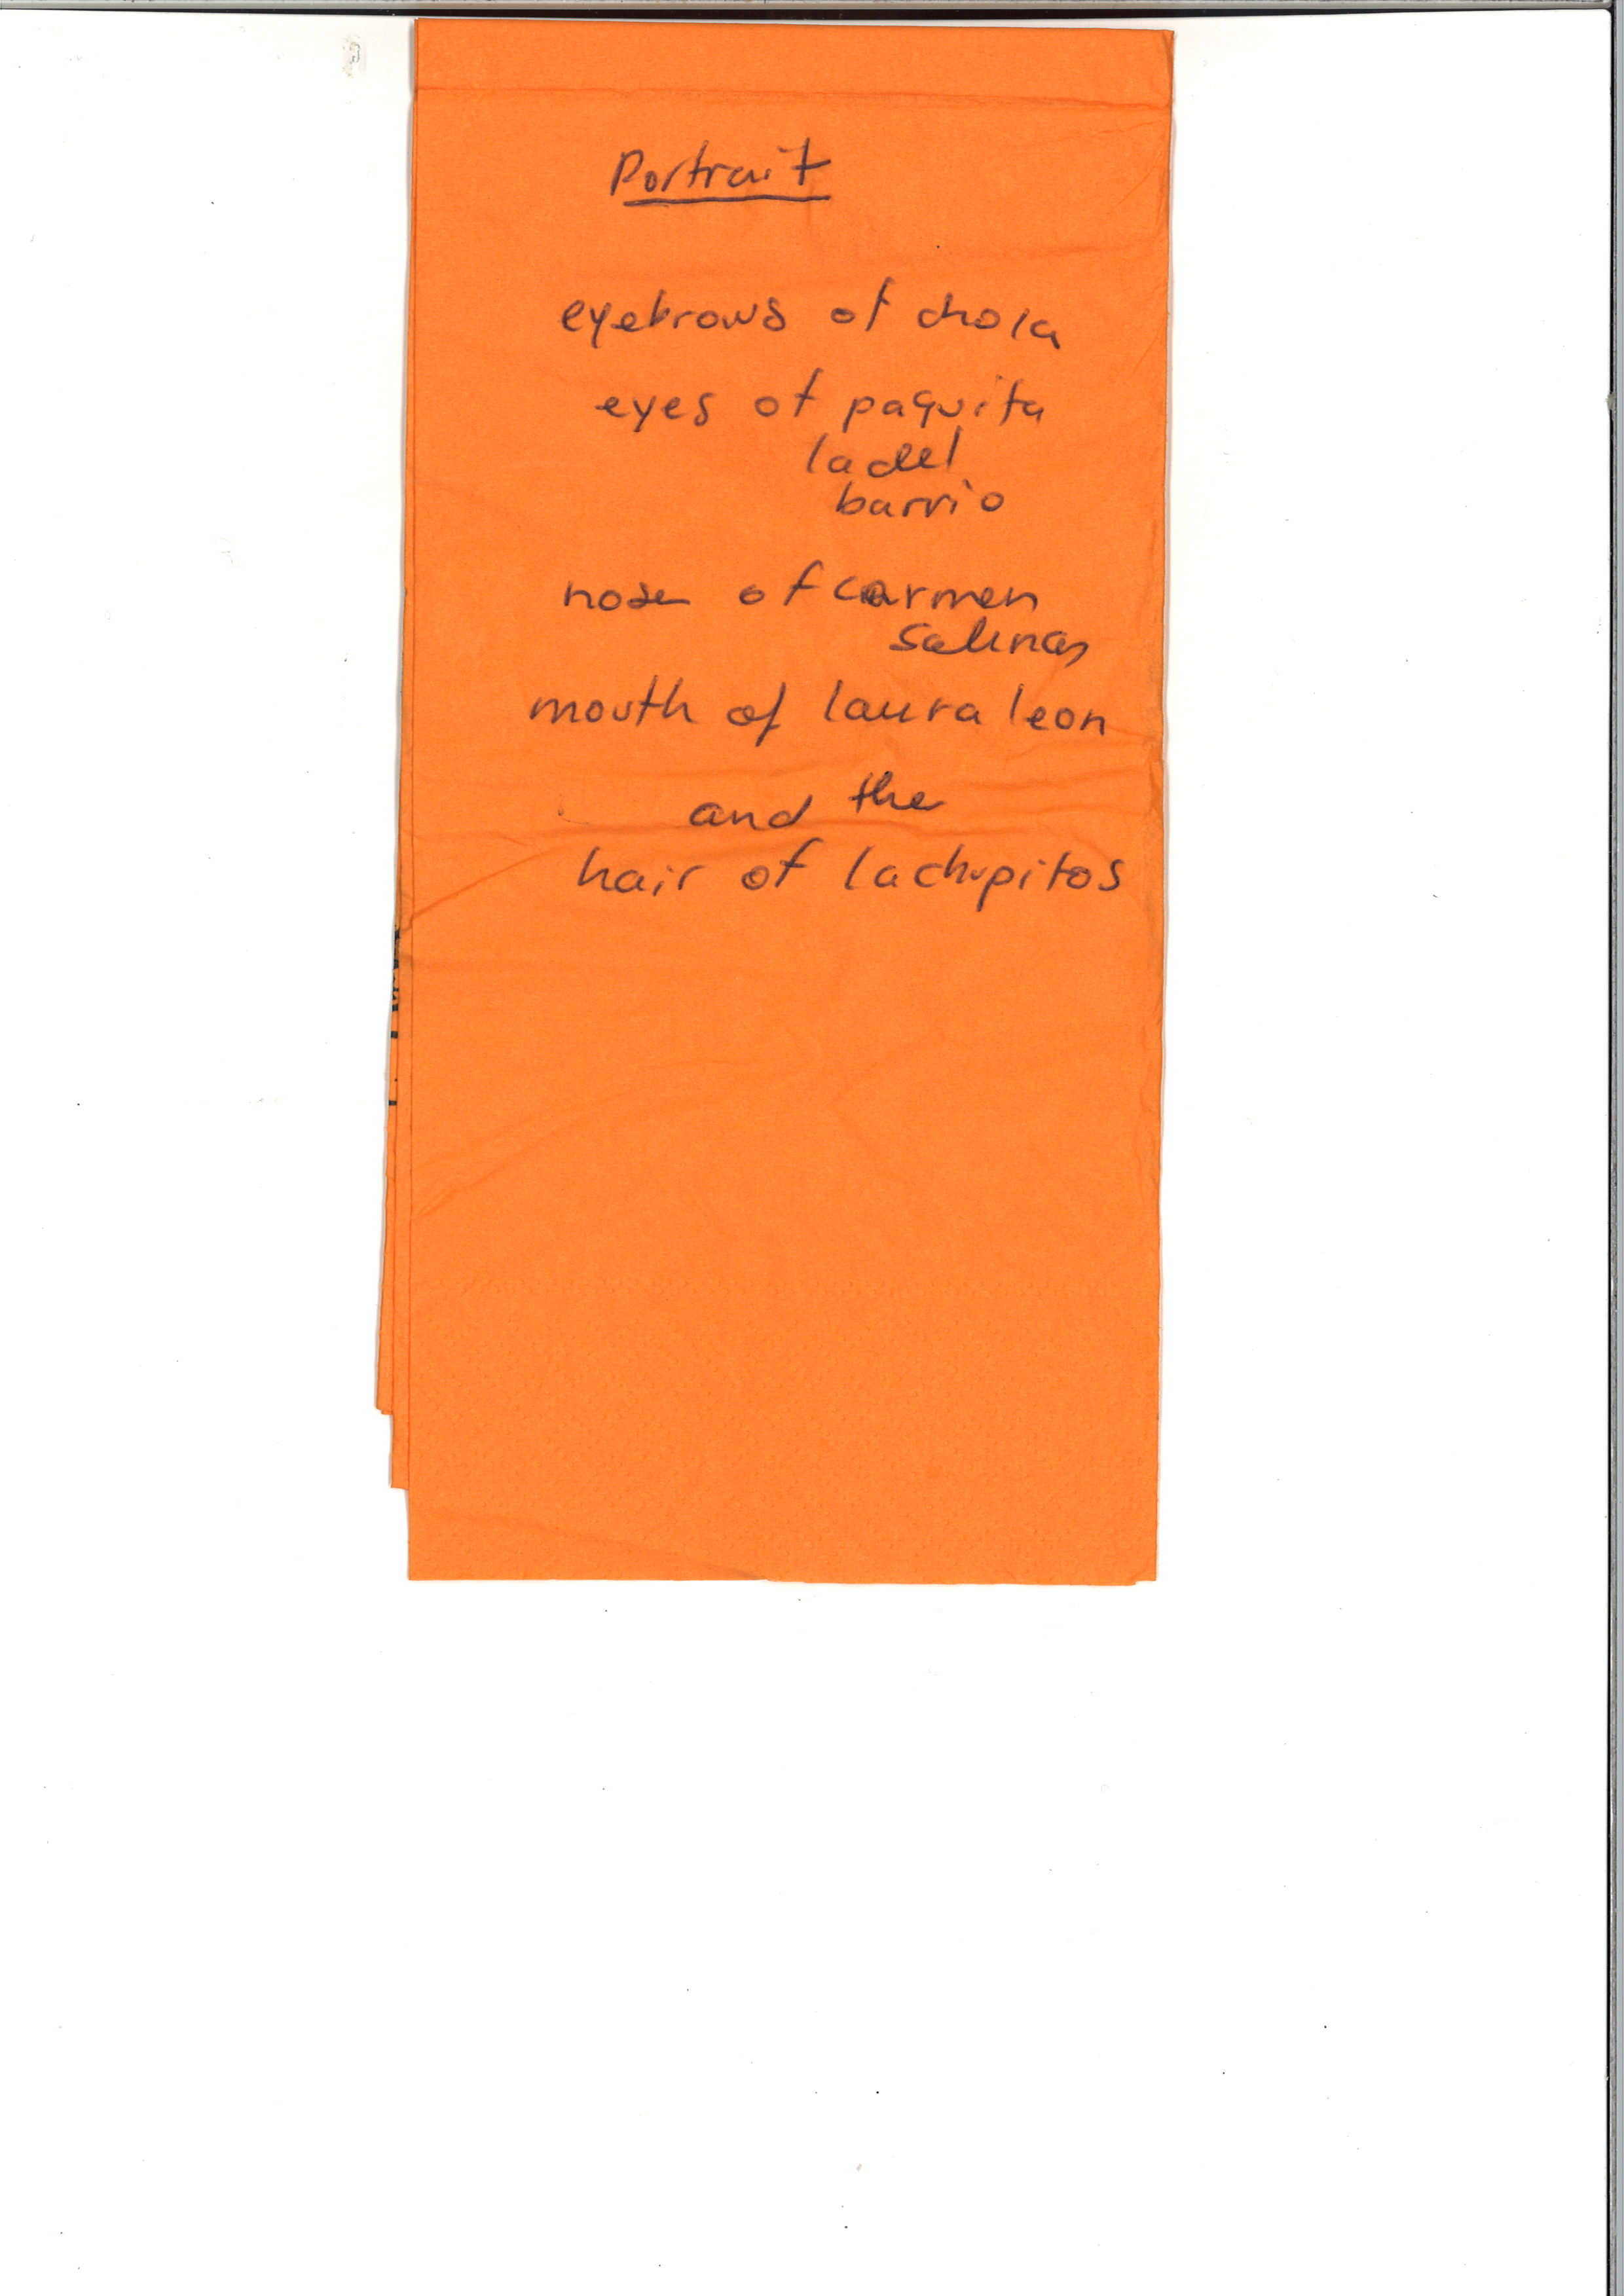 Portrait
eyebrows of chola
eyes of paquita
la del
barrio
nose of carmen
salinas
mouth of laura leon
and the
hair of lachupitos